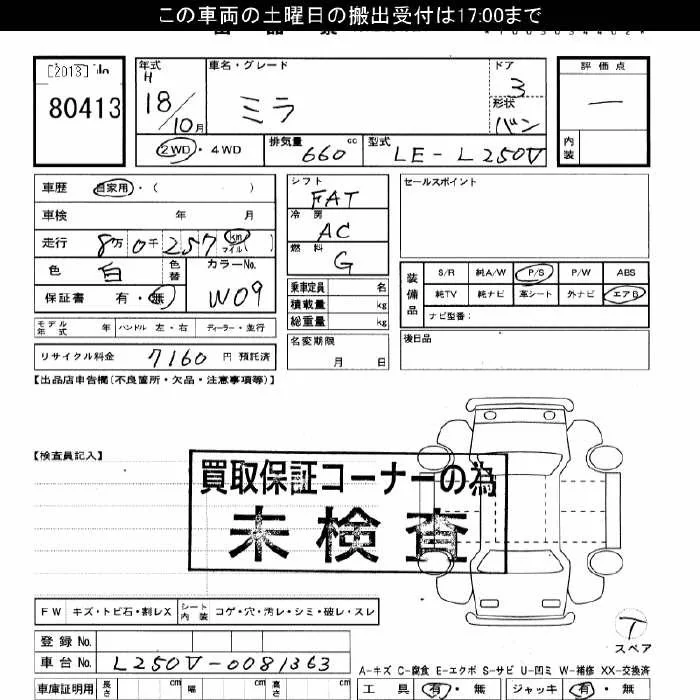 この車両の土曜日の搬出受付は17:00まで
[2013]
80413
年式
H
18/10月
車名・グレード
ミラ
ドア
3
形状
バン
評価点
―
内装
2WD・4WD
排気量
660 cc
型式
LE-L250V
車歴 自家用・( )
車検 年 月
走行 8万0千257 km マイル( )
色 白 色替 カラーNo. W09
保証書 有・無
モデル年式 年 ハンドル 左・右 ディーラー・並行
リサイクル料金 7160 円 預託済
シフト
FAT
冷房
AC
燃料
G
乗車定員 名
積載量 kg
総重量 kg
名変期限
月 日
セールスポイント
装備品
S/R 純A/W P/S P/W ABS
純TV 純ナビ 革シート 外ナビ エアB
ナビ型番:
後日品
【出品店申告欄(不良箇所・欠品・注意事項等)】
【検査員記入】
買取保証コーナーの為
未検査
FW キズ・トビ石・割レX シート内装 コゲ・穴・汚レ・シミ・破レ・スレ
登録 No.
車台 No. L250V-0081363
車庫証明用 長さ cm 幅 cm 高さ cm
T
スペア
A-キズ C-腐食 E-エクボ S-サビ U-凹ミ W-補修 XX-交換済
工具 有・無 ジャッキ 有・無